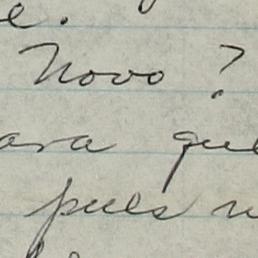 e.
Novo?
ara que
pues